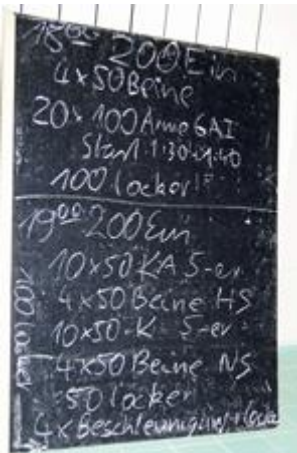 18⁰⁰ 200 Ein
4x50 Beine
20x100 Arme GA I
Start 1:30-1:40
100 locker
19⁰⁰ 200 Ein
10x50 KA 5-er
4x50 Beine HS
10x50-K 5-er
4x50 Beine NS
50 locker
4x Beschleunigung + locker